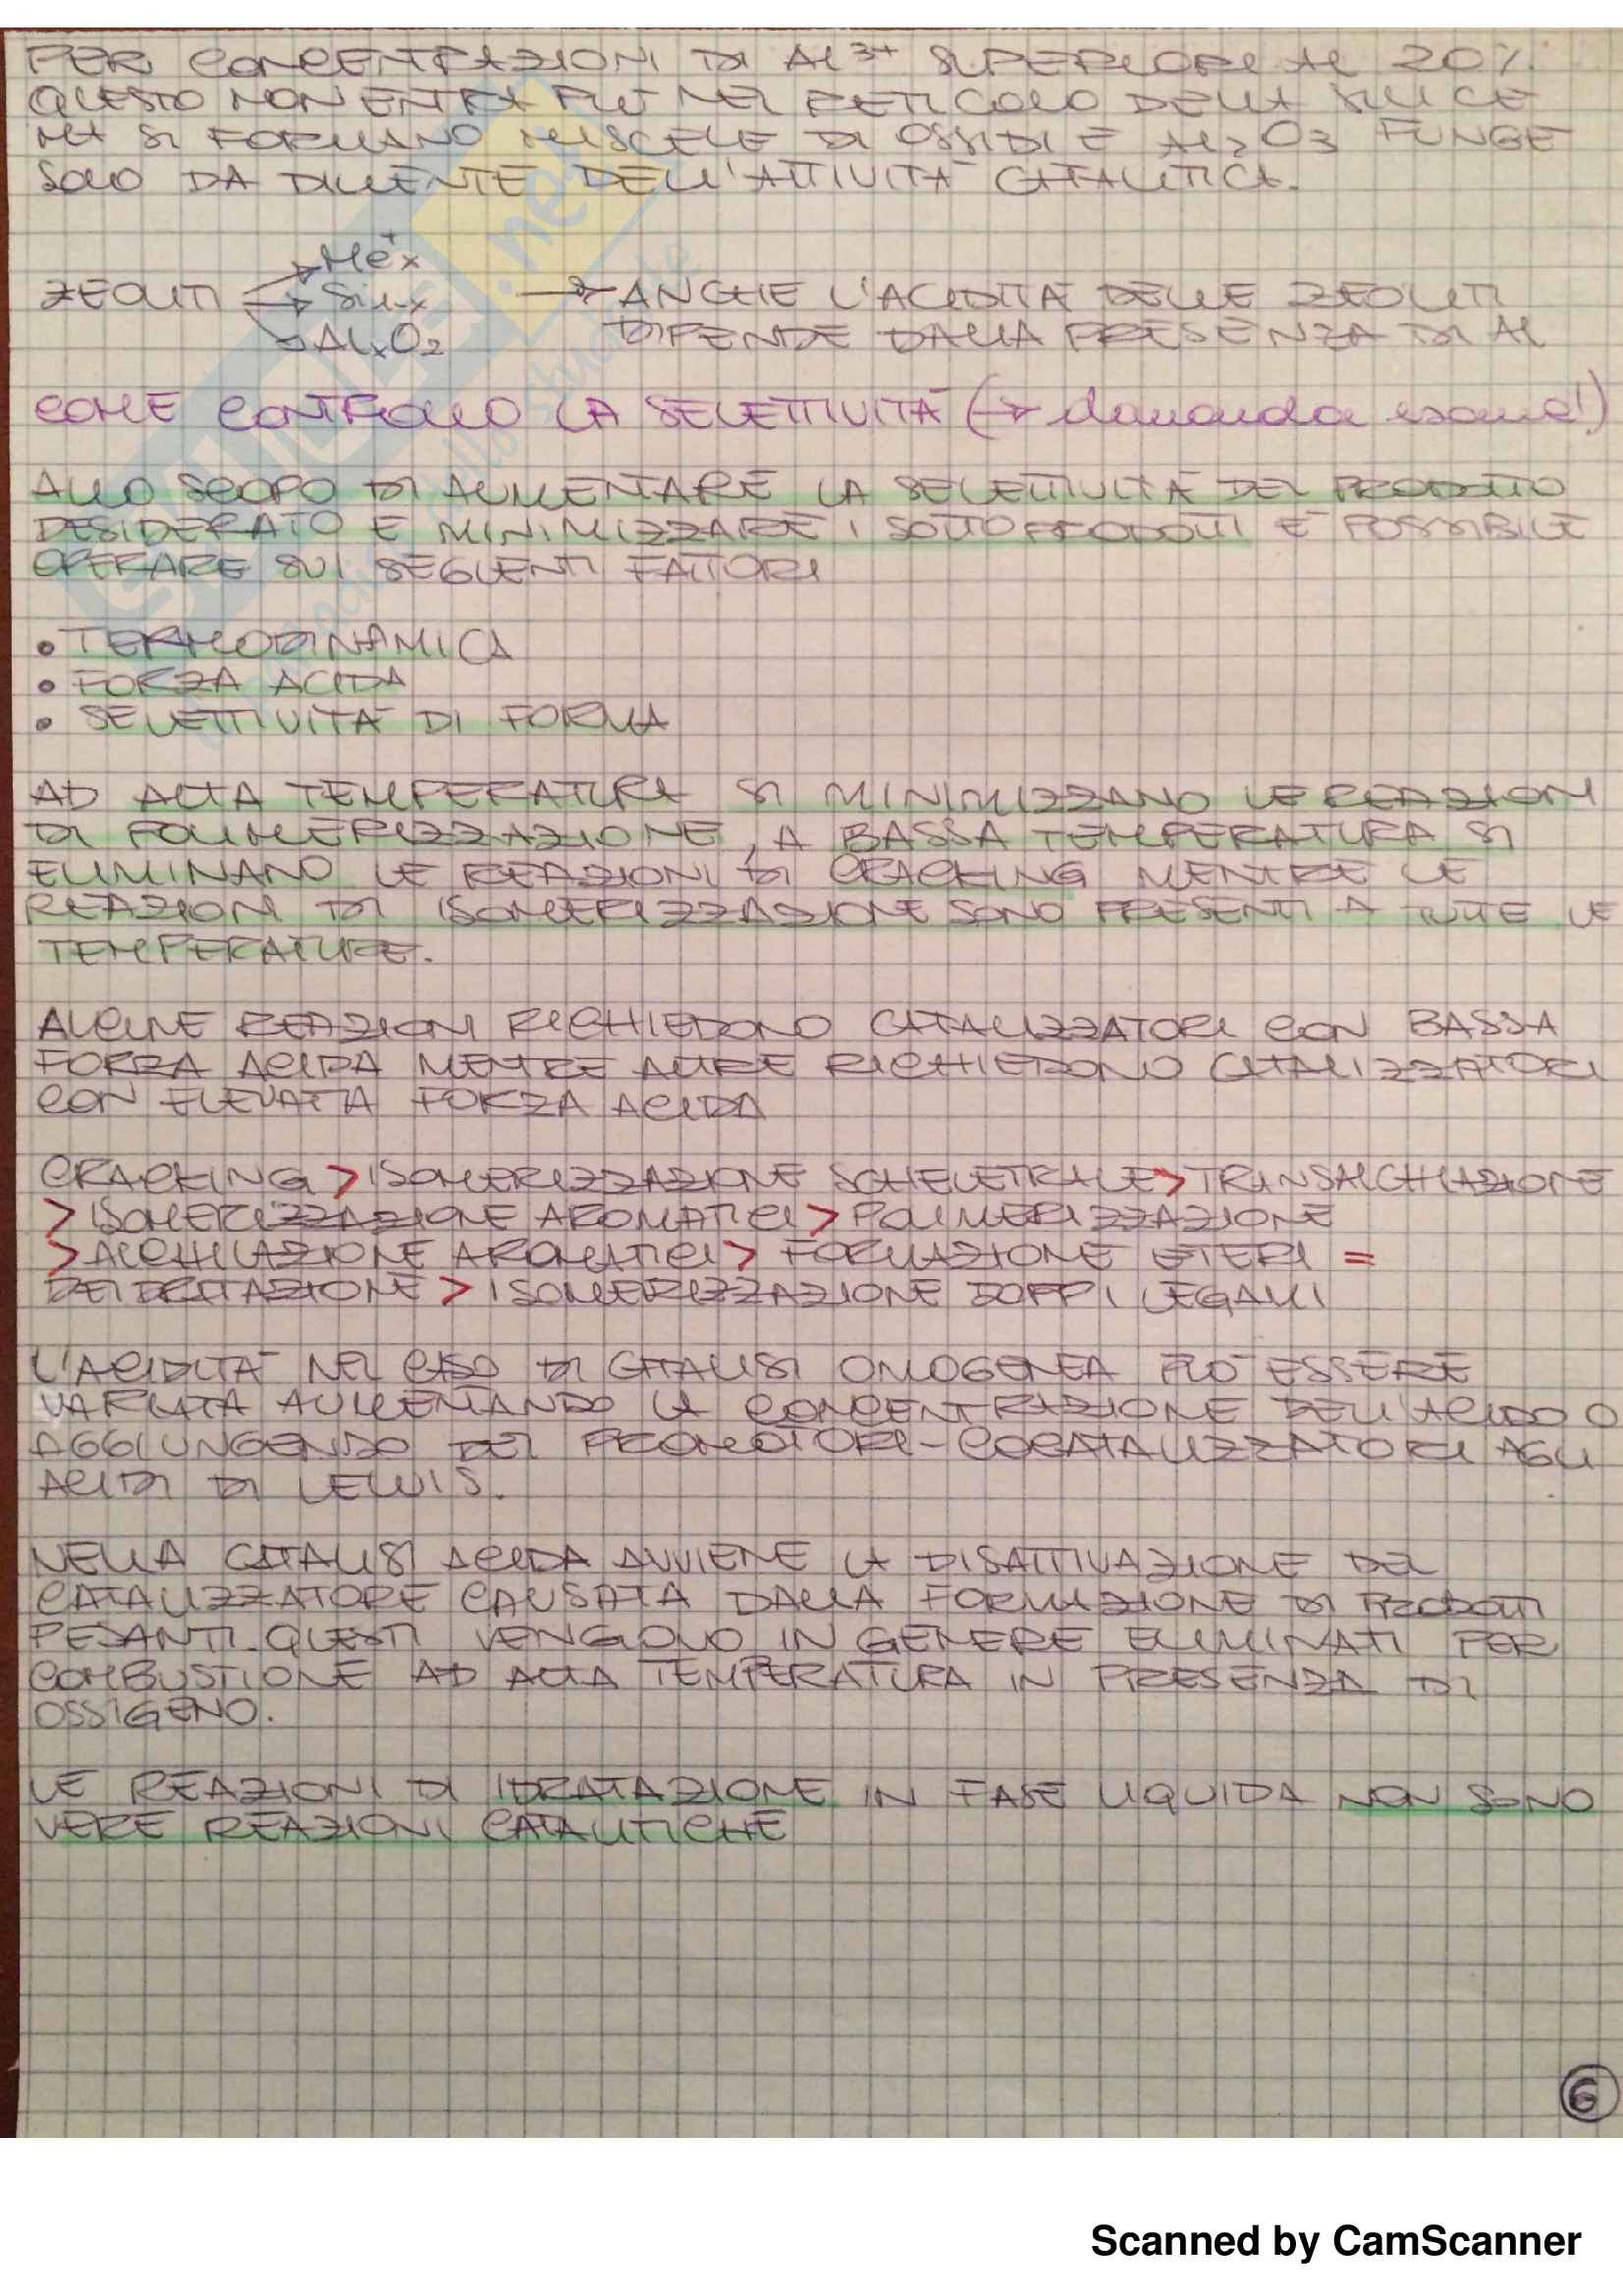 PER CONCENTRAZIONI DI Al³⁺ SUPERIORI AL 20%
QUESTO NON ENTRA PIÙ NEL RETICOLO DELLA SILICE
MA SI FORMANO MISCELE DI OSSIDI E Al₂O₃ FUNGE
SOLO DA DILUENTE DELL'ATTIVITÀ CATALITICA.
Me⁺x
ZEOLITI Si1-x → ANCHE L'ACIDITÀ DELLE ZEOLITI
AlxO₂ DIPENDE DALLA PRESENZA DI Al
COME CONTROLLO LA SELETTIVITÀ (→ domanda esame!)
ALLO SCOPO DI AUMENTARE LA SELETTIVITÀ DEL PRODOTTO
DESIDERATO E MINIMIZZARE I SOTTOPRODOTTI È POSSIBILE
OPERARE SUI SEGUENTI FATTORI
• TERMODINAMICA
• FORZA ACIDA
• SELETTIVITÀ DI FORMA
AD ALTA TEMPERATURA SI MINIMIZZANO LE REAZIONI
DI POLIMERIZZAZIONE, A BASSA TEMPERATURA SI
ELIMINANO LE REAZIONI DI CRACKING MENTRE LE
REAZIONI DI ISOMERIZZAZIONE SONO PRESENTI A TUTTE LE
TEMPERATURE.
ALCUNE REAZIONI RICHIEDONO CATALIZZATORI CON BASSA
FORZA ACIDA MENTRE ALTRE RICHIEDONO CATALIZZATORI
CON ELEVATA FORZA ACIDA
CRACKING > ISOMERIZZAZIONE SCHELETRALE > TRANSALCHILAZIONE
> ISOMERIZZAZIONE AROMATICI > POLIMERIZZAZIONE
> ALCHILAZIONE AROMATICI > FORMAZIONE ETERI =
DEIDRATAZIONE > ISOMERIZZAZIONE DOPPI LEGAMI
L'ACIDITÀ NEL CASO DI CATALISI OMOGENEA PUÒ ESSERE
VARIATA AUMENTANDO LA CONCENTRAZIONE DELL'ACIDO O
AGGIUNGENDO DEI PROMOTORI-COCATALIZZATORI AGLI
ACIDI DI LEWIS.
NELLA CATALISI ACIDA AVVIENE LA DISATTIVAZIONE DEL
CATALIZZATORE CAUSATA DALLA FORMAZIONE DI PRODOTTI
PESANTI. QUESTI VENGONO IN GENERE ELIMINATI PER
COMBUSTIONE AD ALTA TEMPERATURA IN PRESENZA DI
OSSIGENO.
LE REAZIONI DI IDRATAZIONE IN FASE LIQUIDA NON SONO
VERE REAZIONI CATALITICHE
6
Scanned by CamScanner